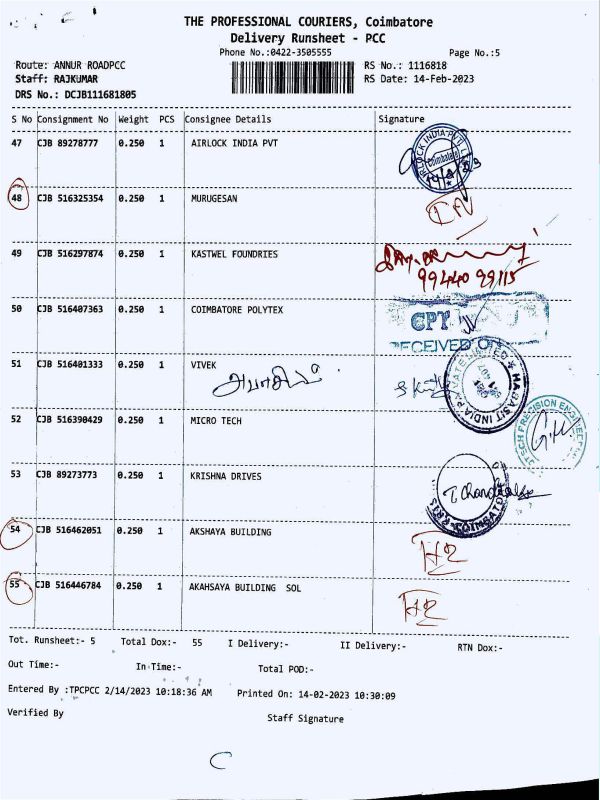 THE PROFESSIONAL COURIERS, Coimbatore
Delivery Runsheet - PCC
Phone No.:0422-3505555 Page No.:5
Route: ANNUR ROADPCC RS No.: 1116818
Staff: RAJKUMAR RS Date: 14-Feb-2023
DRS No.: DCJB111681805
S No Consignment No Weight PCS Consignee Details Signature
47 CJB 89278777 0.250 1 AIRLOCK INDIA PVT
48 CJB 516325354 0.250 1 MURUGESAN
49 CJB 516297874 0.250 1 KASTWEL FOUNDRIES
99440 99115
50 CJB 516407363 0.250 1 COIMBATORE POLYTEX
CPT
RECEIVED ON
51 CJB 516401333 0.250 1 VIVEK
HABASIT INDIA
52 CJB 516390429 0.250 1 MICRO TECH
PRECISION
53 CJB 89273773 0.250 1 KRISHNA DRIVES
COIMBATORE
54 CJB 516462051 0.250 1 AKSHAYA BUILDING
55 CJB 516446784 0.250 1 AKAHSAYA BUILDING SOL
Tot. Runsheet:- 5 Total Dox:- 55 I Delivery:- II Delivery:- RTN Dox:-
Out Time:- In Time:- Total POD:-
Entered By :TPCPCC 2/14/2023 10:18:36 AM Printed On: 14-02-2023 10:30:09
Verified By Staff Signature